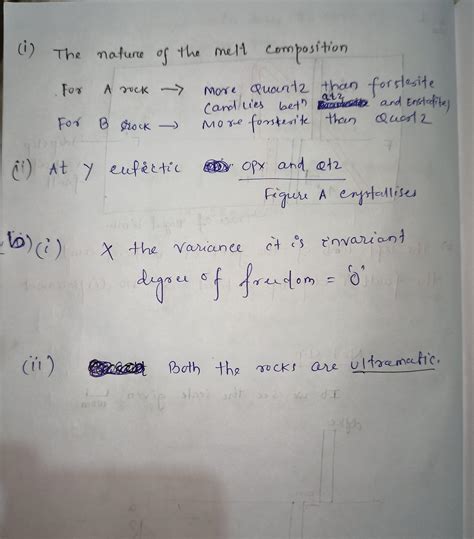 (i) The nature of the melt composition
For A rock → More Quantz than forsterite
(and lies betn qtz and Enstatite)
For B rock → More forsterite than Quartz
(ii) At y eutectic opx and Qtz
Figure A crystallises
(b) (i) X the variance it is invariant
degree of freedom = '0'
(ii) Both the rocks are ultramafic.